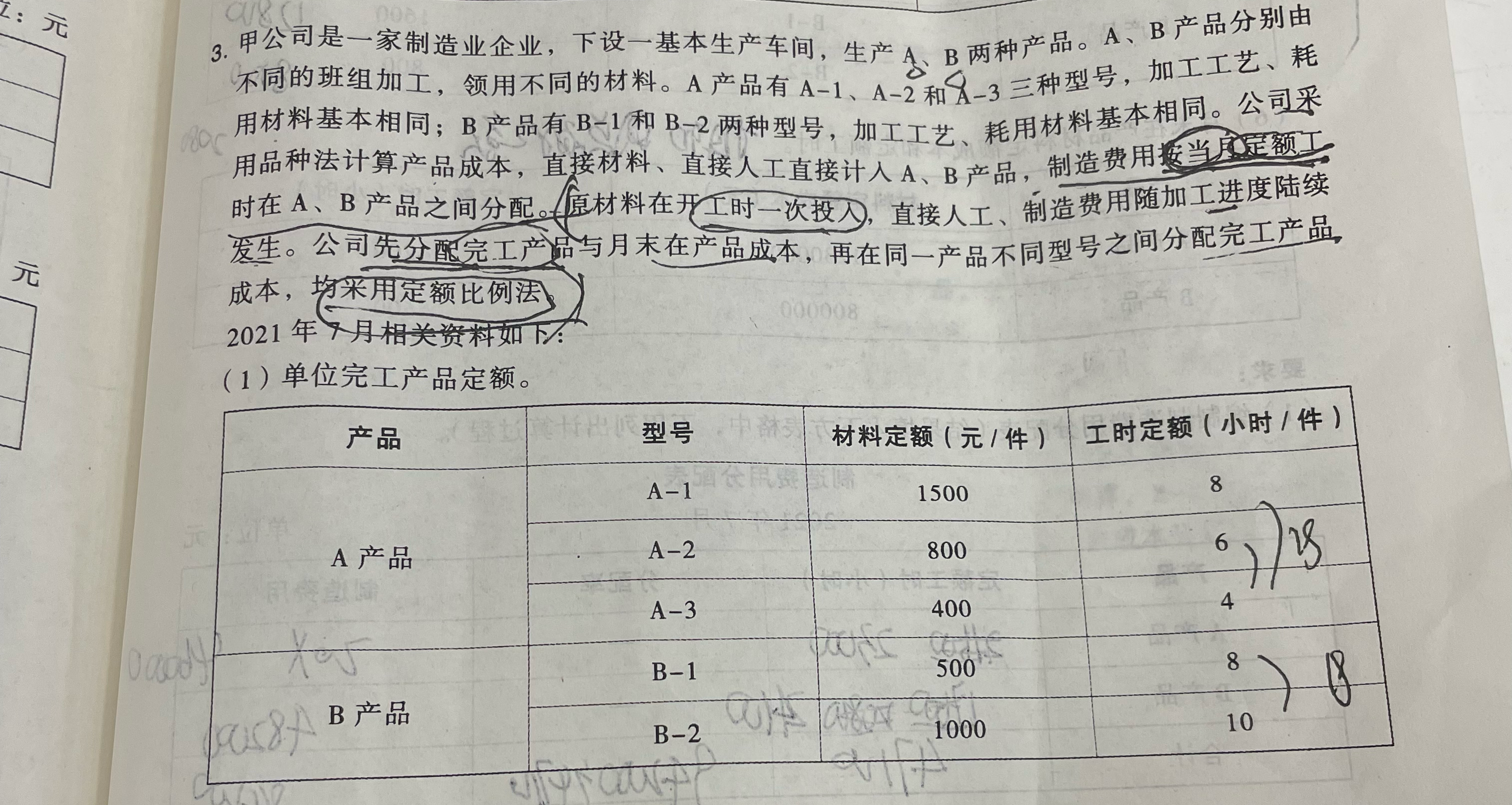 立：元
元
3. 甲公司是一家制造业企业，下设一基本生产车间，生产 A、B 两种产品。A、B 产品分别由
不同的班组加工，领用不同的材料。A 产品有 A-1、A-2 和 A-3 三种型号，加工工艺、耗
用材料基本相同；B 产品有 B-1 和 B-2 两种型号，加工工艺、耗用材料基本相同。公司采
用品种法计算产品成本，直接材料、直接人工直接计入 A、B 产品，制造费用按当月定额工
时在 A、B 产品之间分配。原材料在开工时一次投入，直接人工、制造费用随加工进度陆续
发生。公司先分配完工产品与月末在产品成本，再在同一产品不同型号之间分配完工产品
成本，均采用定额比例法。
2021 年 7 月相关资料如下：
（1）单位完工产品定额。
产品 型号 材料定额（元/件） 工时定额（小时/件）
A 产品 A-1 1500 8
A-2 800 6
A-3 400 4
B 产品 B-1 500 8
B-2 1000 10